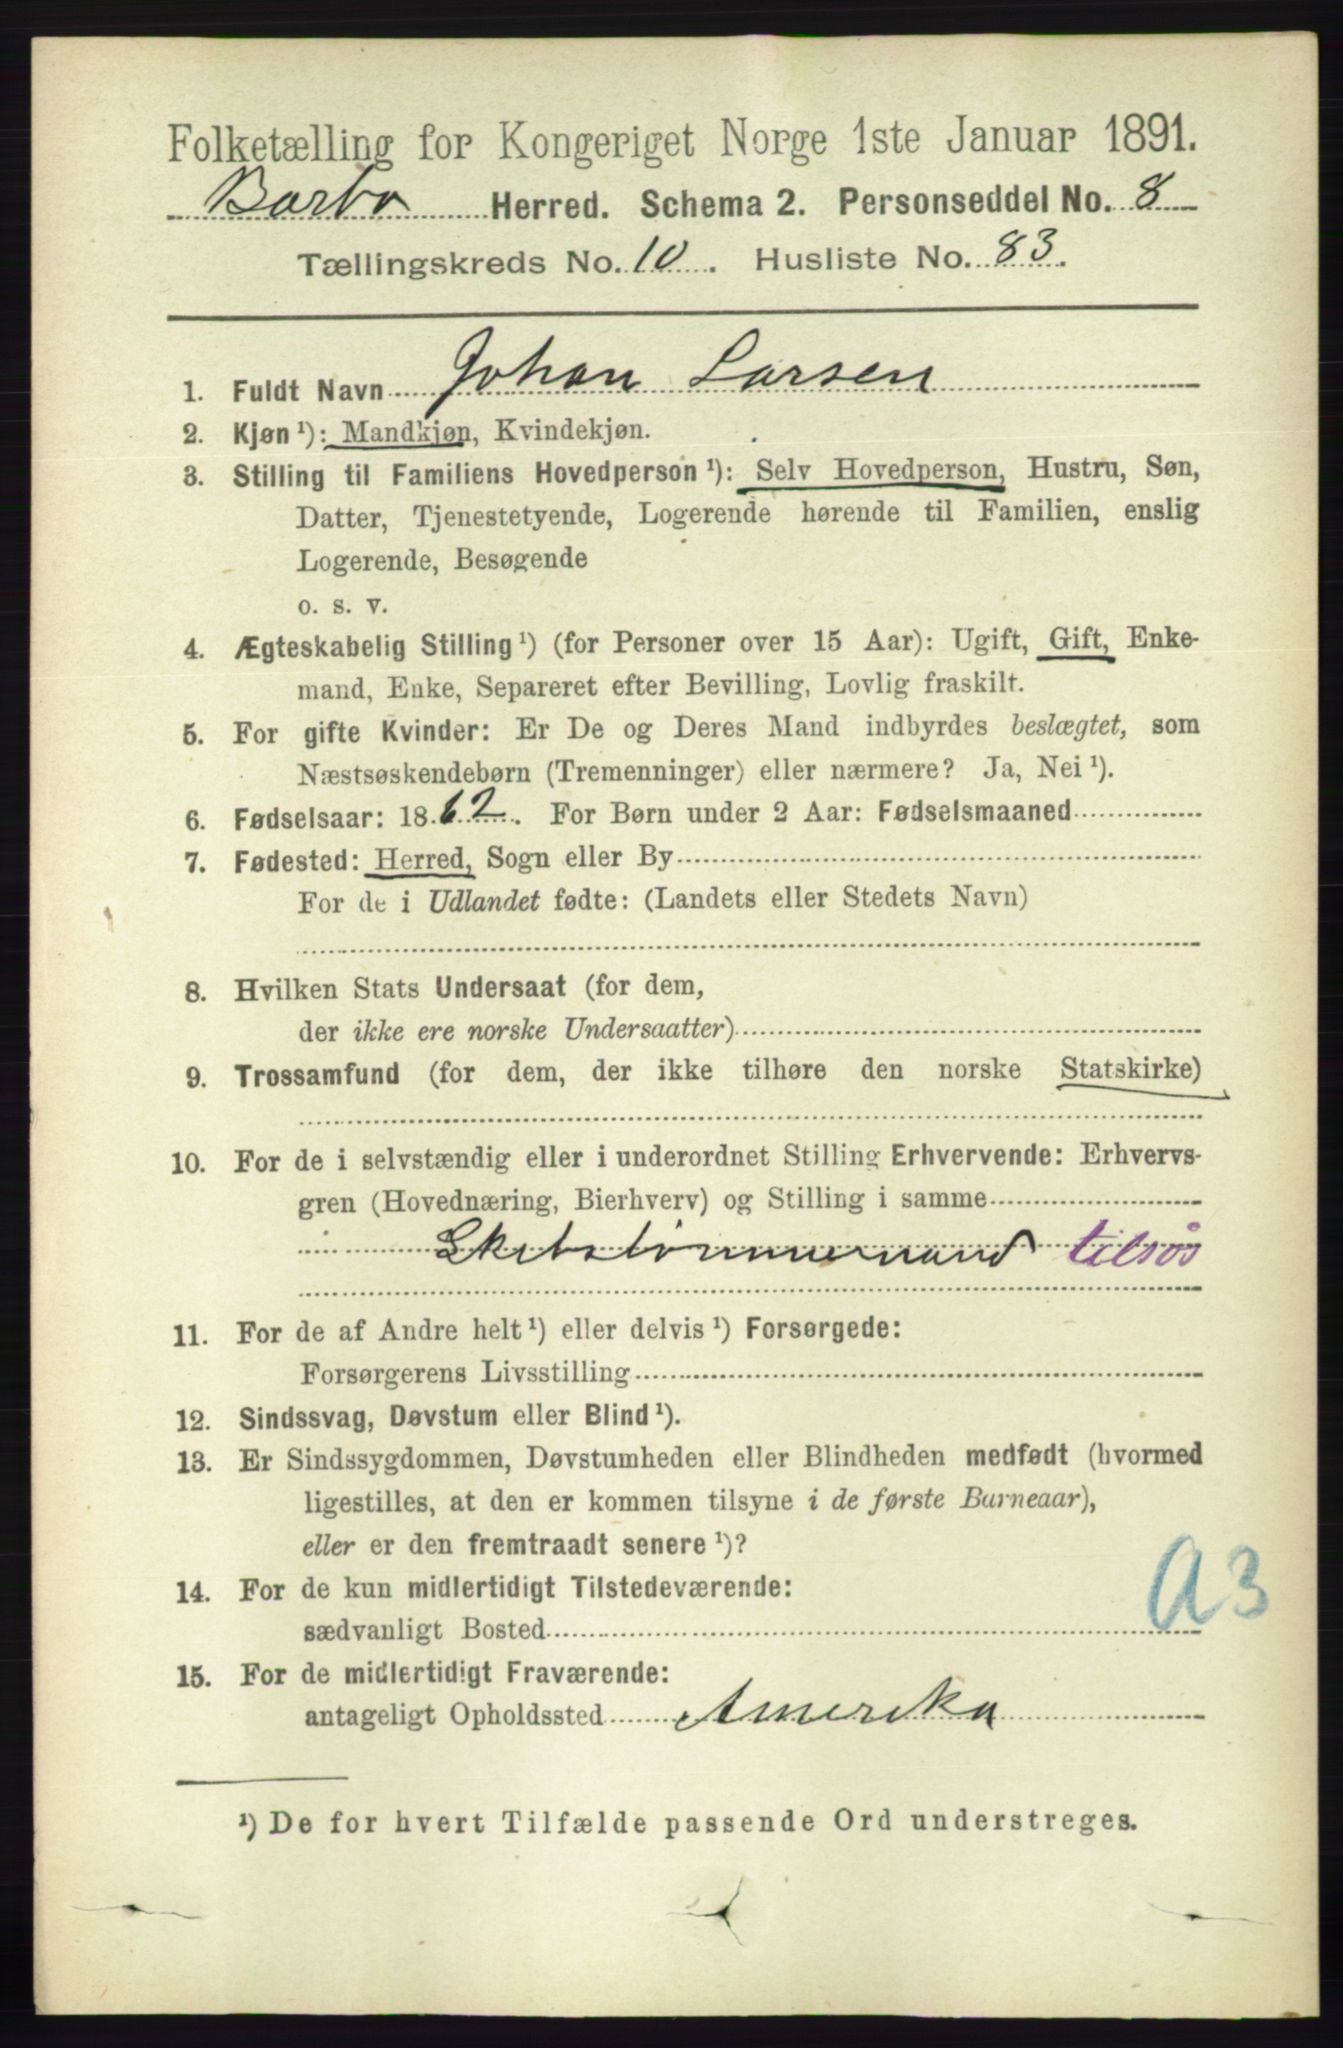 Folketælling for Kongeriget Norge 1ste Januar 1891.
Barbo Herred. Schema 2. Personseddel No. 8
Tællingskreds No. 10. Husliste No. 83.
1. Fuldt Navn Johan Larsen
2. Kjøn ¹): Mandkjøn, Kvindekjøn.
3. Stilling til Familiens Hovedperson ¹): Selv Hovedperson, Hustru, Søn,
Datter, Tjenestetyende, Logerende hørende til Familien, enslig
Logerende, Besøgende
o. s. v.
4. Ægteskabelig Stilling ¹) (for Personer over 15 Aar): Ugift, Gift, Enke-
mand, Enke, Separeret efter Bevilling, Lovlig fraskilt.
5. For gifte Kvinder: Er De og Deres Mand indbyrdes beslægtet, som
Næstsøskendebørn (Tremenninger) eller nærmere? Ja, Nei ¹).
6. Fødselsaar: 1862. For Børn under 2 Aar: Fødselsmaaned
7. Fødested: Herred, Sogn eller By
For de i Udlandet fødte: (Landets eller Stedets Navn)
8. Hvilken Stats Undersaat (for dem,
der ikke ere norske Undersaatter)
9. Trossamfund (for dem, der ikke tilhøre den norske Statskirke)
10. For de i selvstændig eller i underordnet Stilling Erhvervende: Erhvervs-
gren (Hovednæring, Bierhverv) og Stilling i samme
Skibstømmermand tilsøs
11. For de af Andre helt ¹) eller delvis ¹) Forsørgede:
Forsørgerens Livsstilling
12. Sindssvag, Døvstum eller Blind ¹).
13. Er Sindssygdommen, Døvstumheden eller Blindheden medfødt (hvormed
ligestilles, at den er kommen tilsyne i de første Barneaar),
eller er den fremtraadt senere ¹)?
A3
14. For de kun midlertidigt Tilstedeværende:
sædvanligt Bosted
15. For de midlertidigt Fraværende:
antageligt Opholdssted Amerika
¹) De for hvert Tilfælde passende Ord understreges.